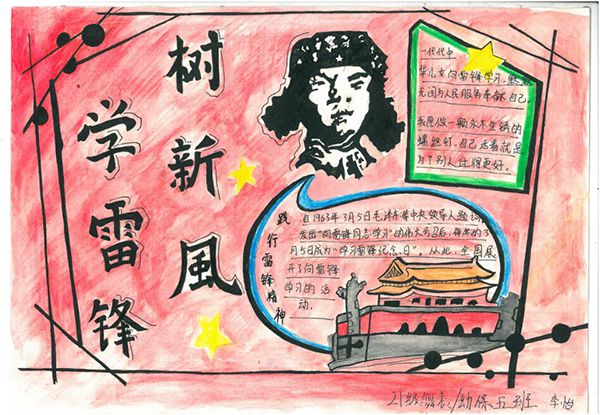 学雷锋
树新風
一代代中
华儿女向雷锋学习,默默
无闻为人民服务奉献自己。
我愿做一颗永不生锈的
螺丝钉,自己活着就是
为了别人过得更好。
践行雷锋精神
自1963年3月5日毛泽东等中央领导人题词
发出"向雷锋同志学习"的伟大号召后,每年的3
月5日成为"学习雷锋纪念日"。从此,全国展
开了向雷锋
学习的活
动.
21级舞表/幼保五班 李怡